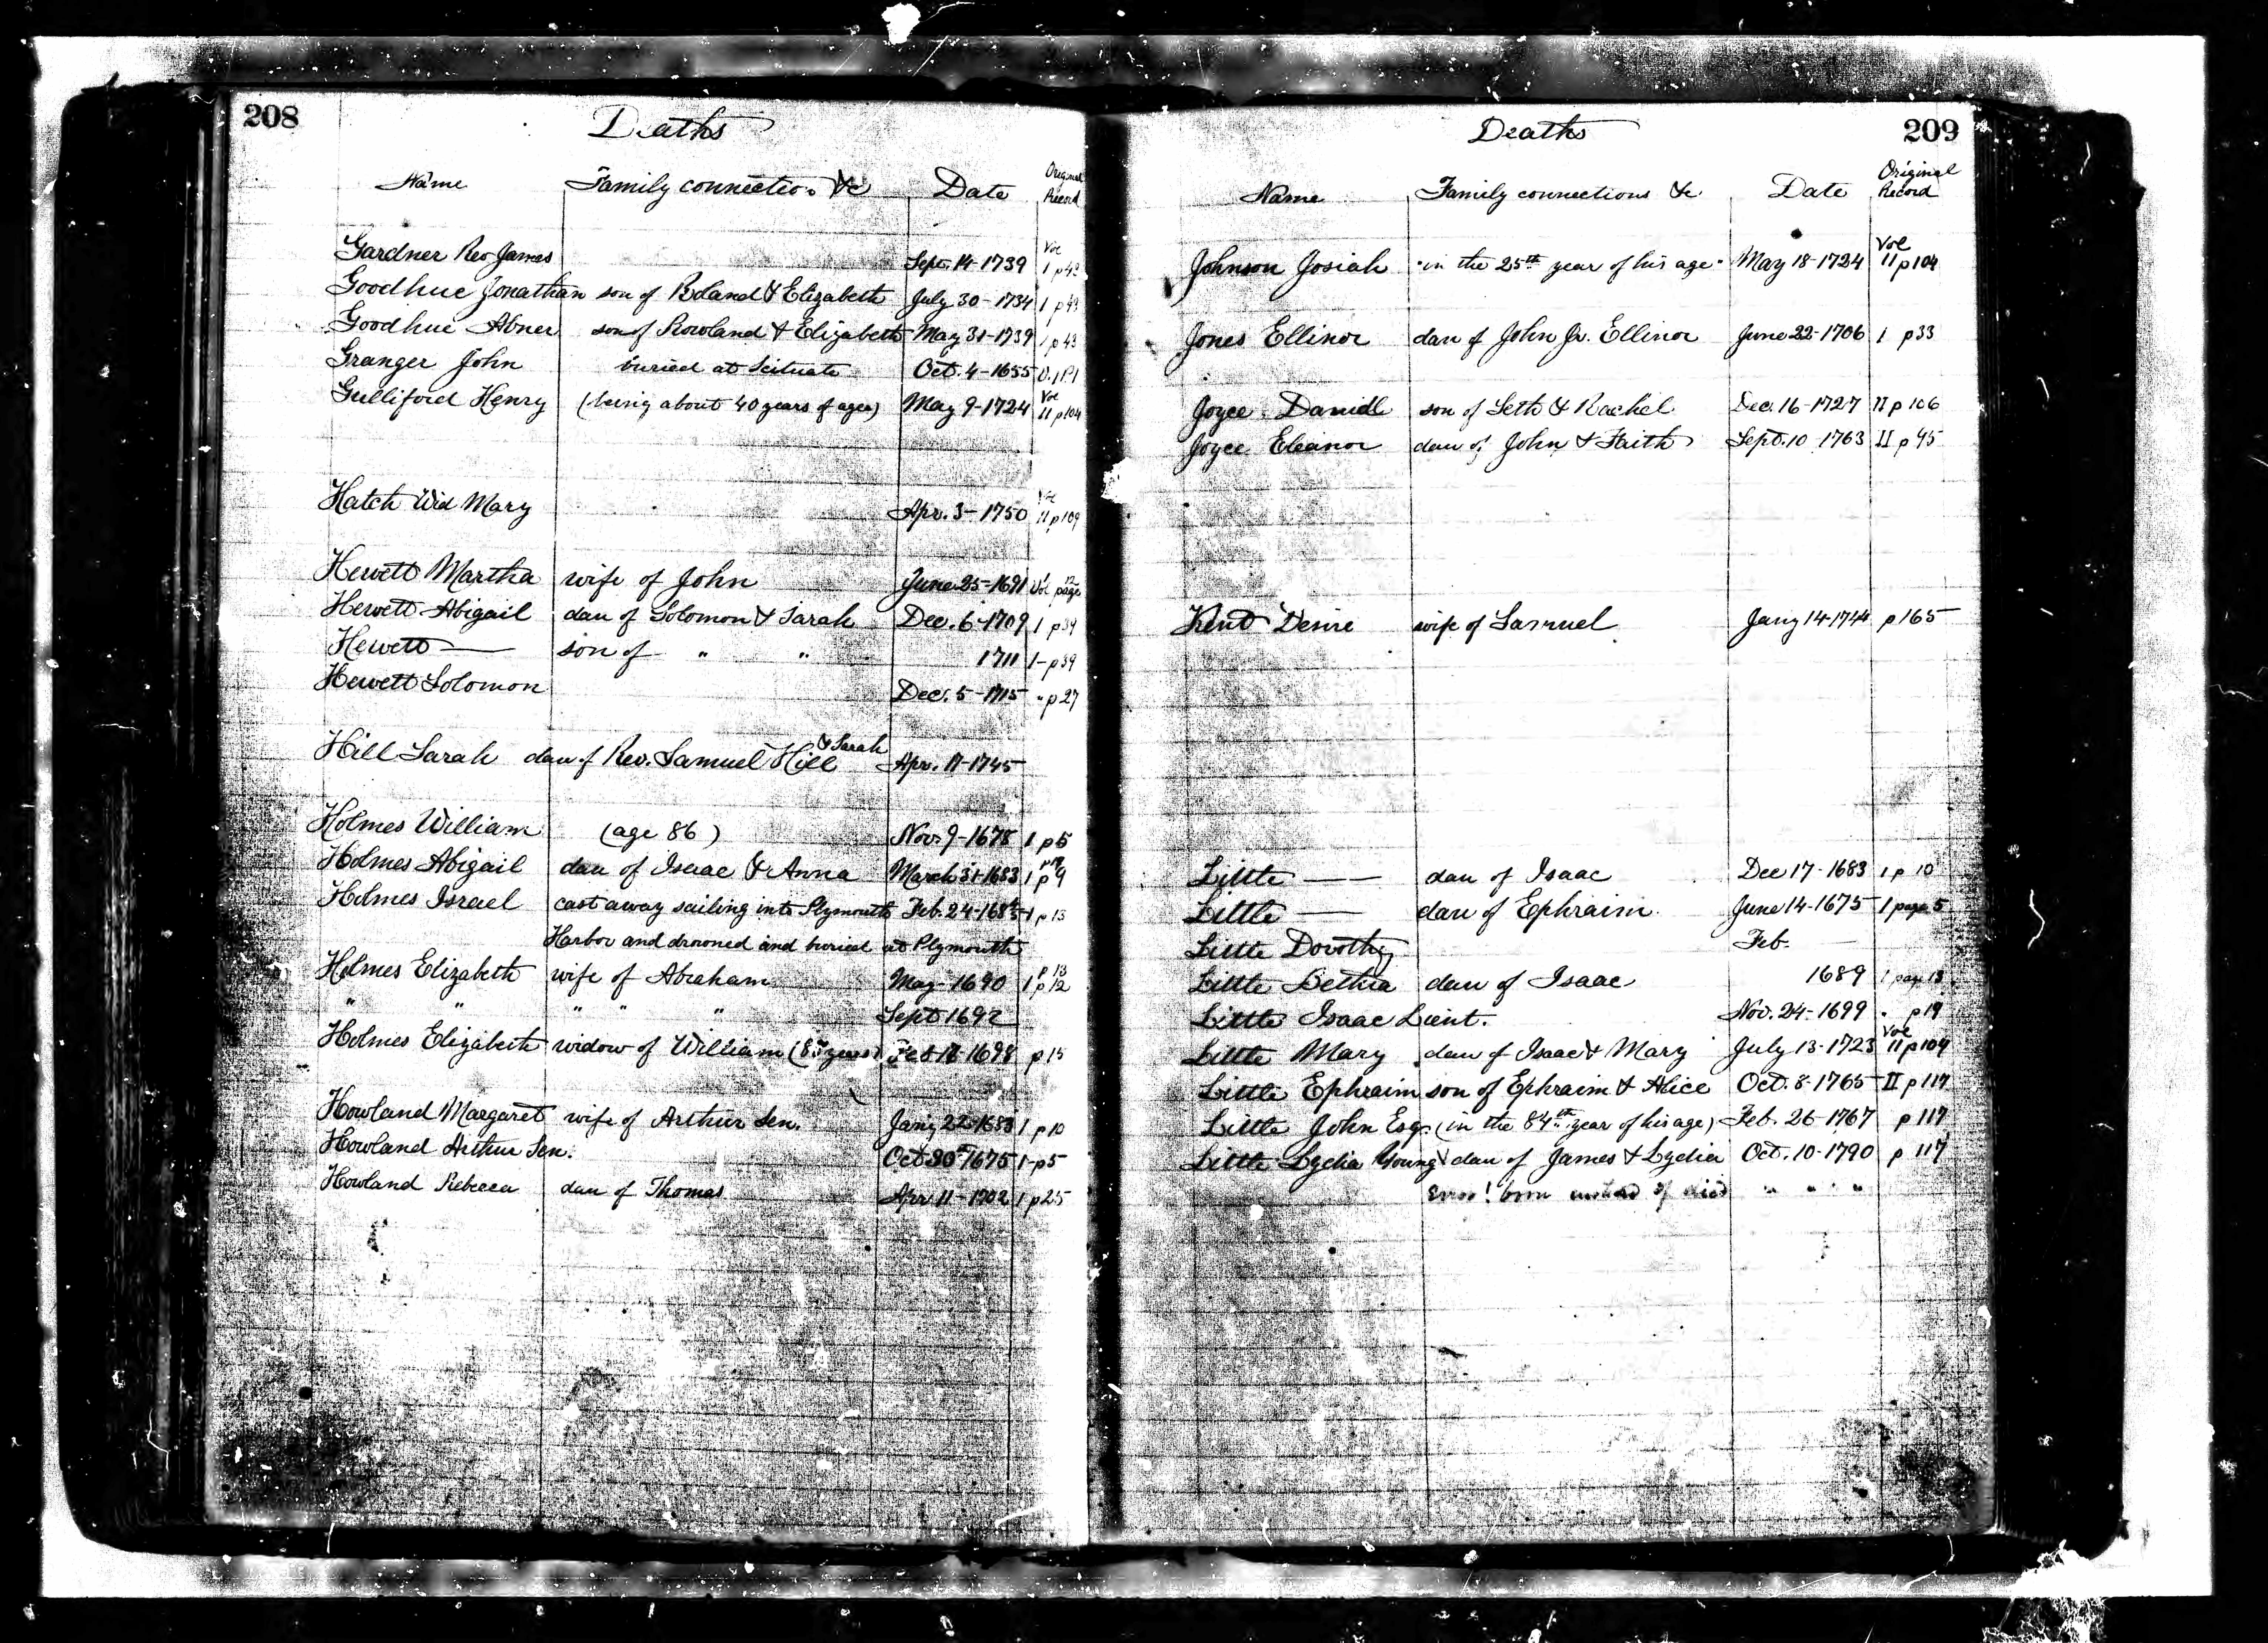 208
Deaths
Name Family connection &c Date Original Record
Gardner Rev James Sept. 14-1739 Vol 1 p43
Goodhue Jonathan son of Roland & Elizabeth July 30-1734 1 p43
Goodhue Abner son of Rowland & Elizabeth May 31-1739 1 p43
Granger John buried at Scituate Oct. 4-1655
Gulliford Henry (being about 40 years of age) May 9-1724 Vol II p104
Hatch Wid Mary Apr. 3-1750 Vol II p109
Hewett Martha wife of John June 25-1691 Vol 1 page 12
Hewett Abigail dau of Solomon & Sarah Dec. 6-1709 1 p39
Hewett — son of " " 1711 1-p39
Hewett Solomon Dec. 5-1715 " p27
Hill Sarah dau of Rev. Samuel Hill & Sarah Apr. 17-1745
Holmes William (age 86) Nov. 9-1678 1 p5
Holmes Abigail dau of Isaac & Anna March 31-1683 1 p9
Holmes Israel cast away sailing into Plymouth Feb. 24-1684/5 1 p13
Harbor and drowned and buried at Plymouth
Holmes Elizabeth wife of Abraham May-1690 1 p13 p12
" " " " " Sept 1692
Holmes Elizabeth widow of William (85 years) Feb 17-1698 p15
Howland Margaret wife of Arthur Sen. Jany 22-1683 1 p10
Howland Arthur Sen. Oct 30th 1675 1-p5
Howland Rebecca dau of Thomas Apr 11-1702 1 p25
209
Deaths
Name Family connections &c Date Original Record
Johnson Josiah "in the 25th year of his age" May 18-1724 Vol II p104
Jones Ellinor dau of John Jr. Ellinor June 22-1706 1 p33
Joyce Daniell son of Seth & Rachel Dec. 16-1727 II p106
Joyce Eleanor dau of John & Faith Sept. 10 1763 II p45
Kent Desire wife of Samuel Jany 14-1744 p165
Little — dau of Isaac Dec 17-1683 1 p 10
Little — dau of Ephraim June 14-1675 1 page 5
Little Dorothy Feb. —
Little Bethia dau of Isaac 1689 1 page 13
Little Isaac Lieut. Nov. 24-1699 " p19
Little Mary dau of Isaac & Mary July 13-1723 Vol II p104
Little Ephraim son of Ephraim & Alice Oct. 8-1765 II p117
Little John Esq. (in the 84th year of his age) Feb. 26-1767 p117
Little Lydia Young dau of James & Lydia Oct. 10-1790 p 117
Error! born instead of died " " " "